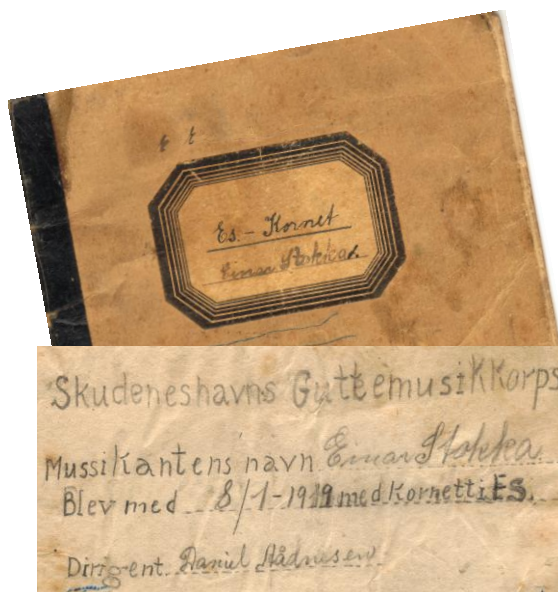 t t
Es. - Kornet
Einar Stokka.
Skudeneshavns Guttemusikkorps
Mussikantens navn Einar Stokka
Blev med 8/1-1919 med Kornett i ES.
Dirigent Daniel